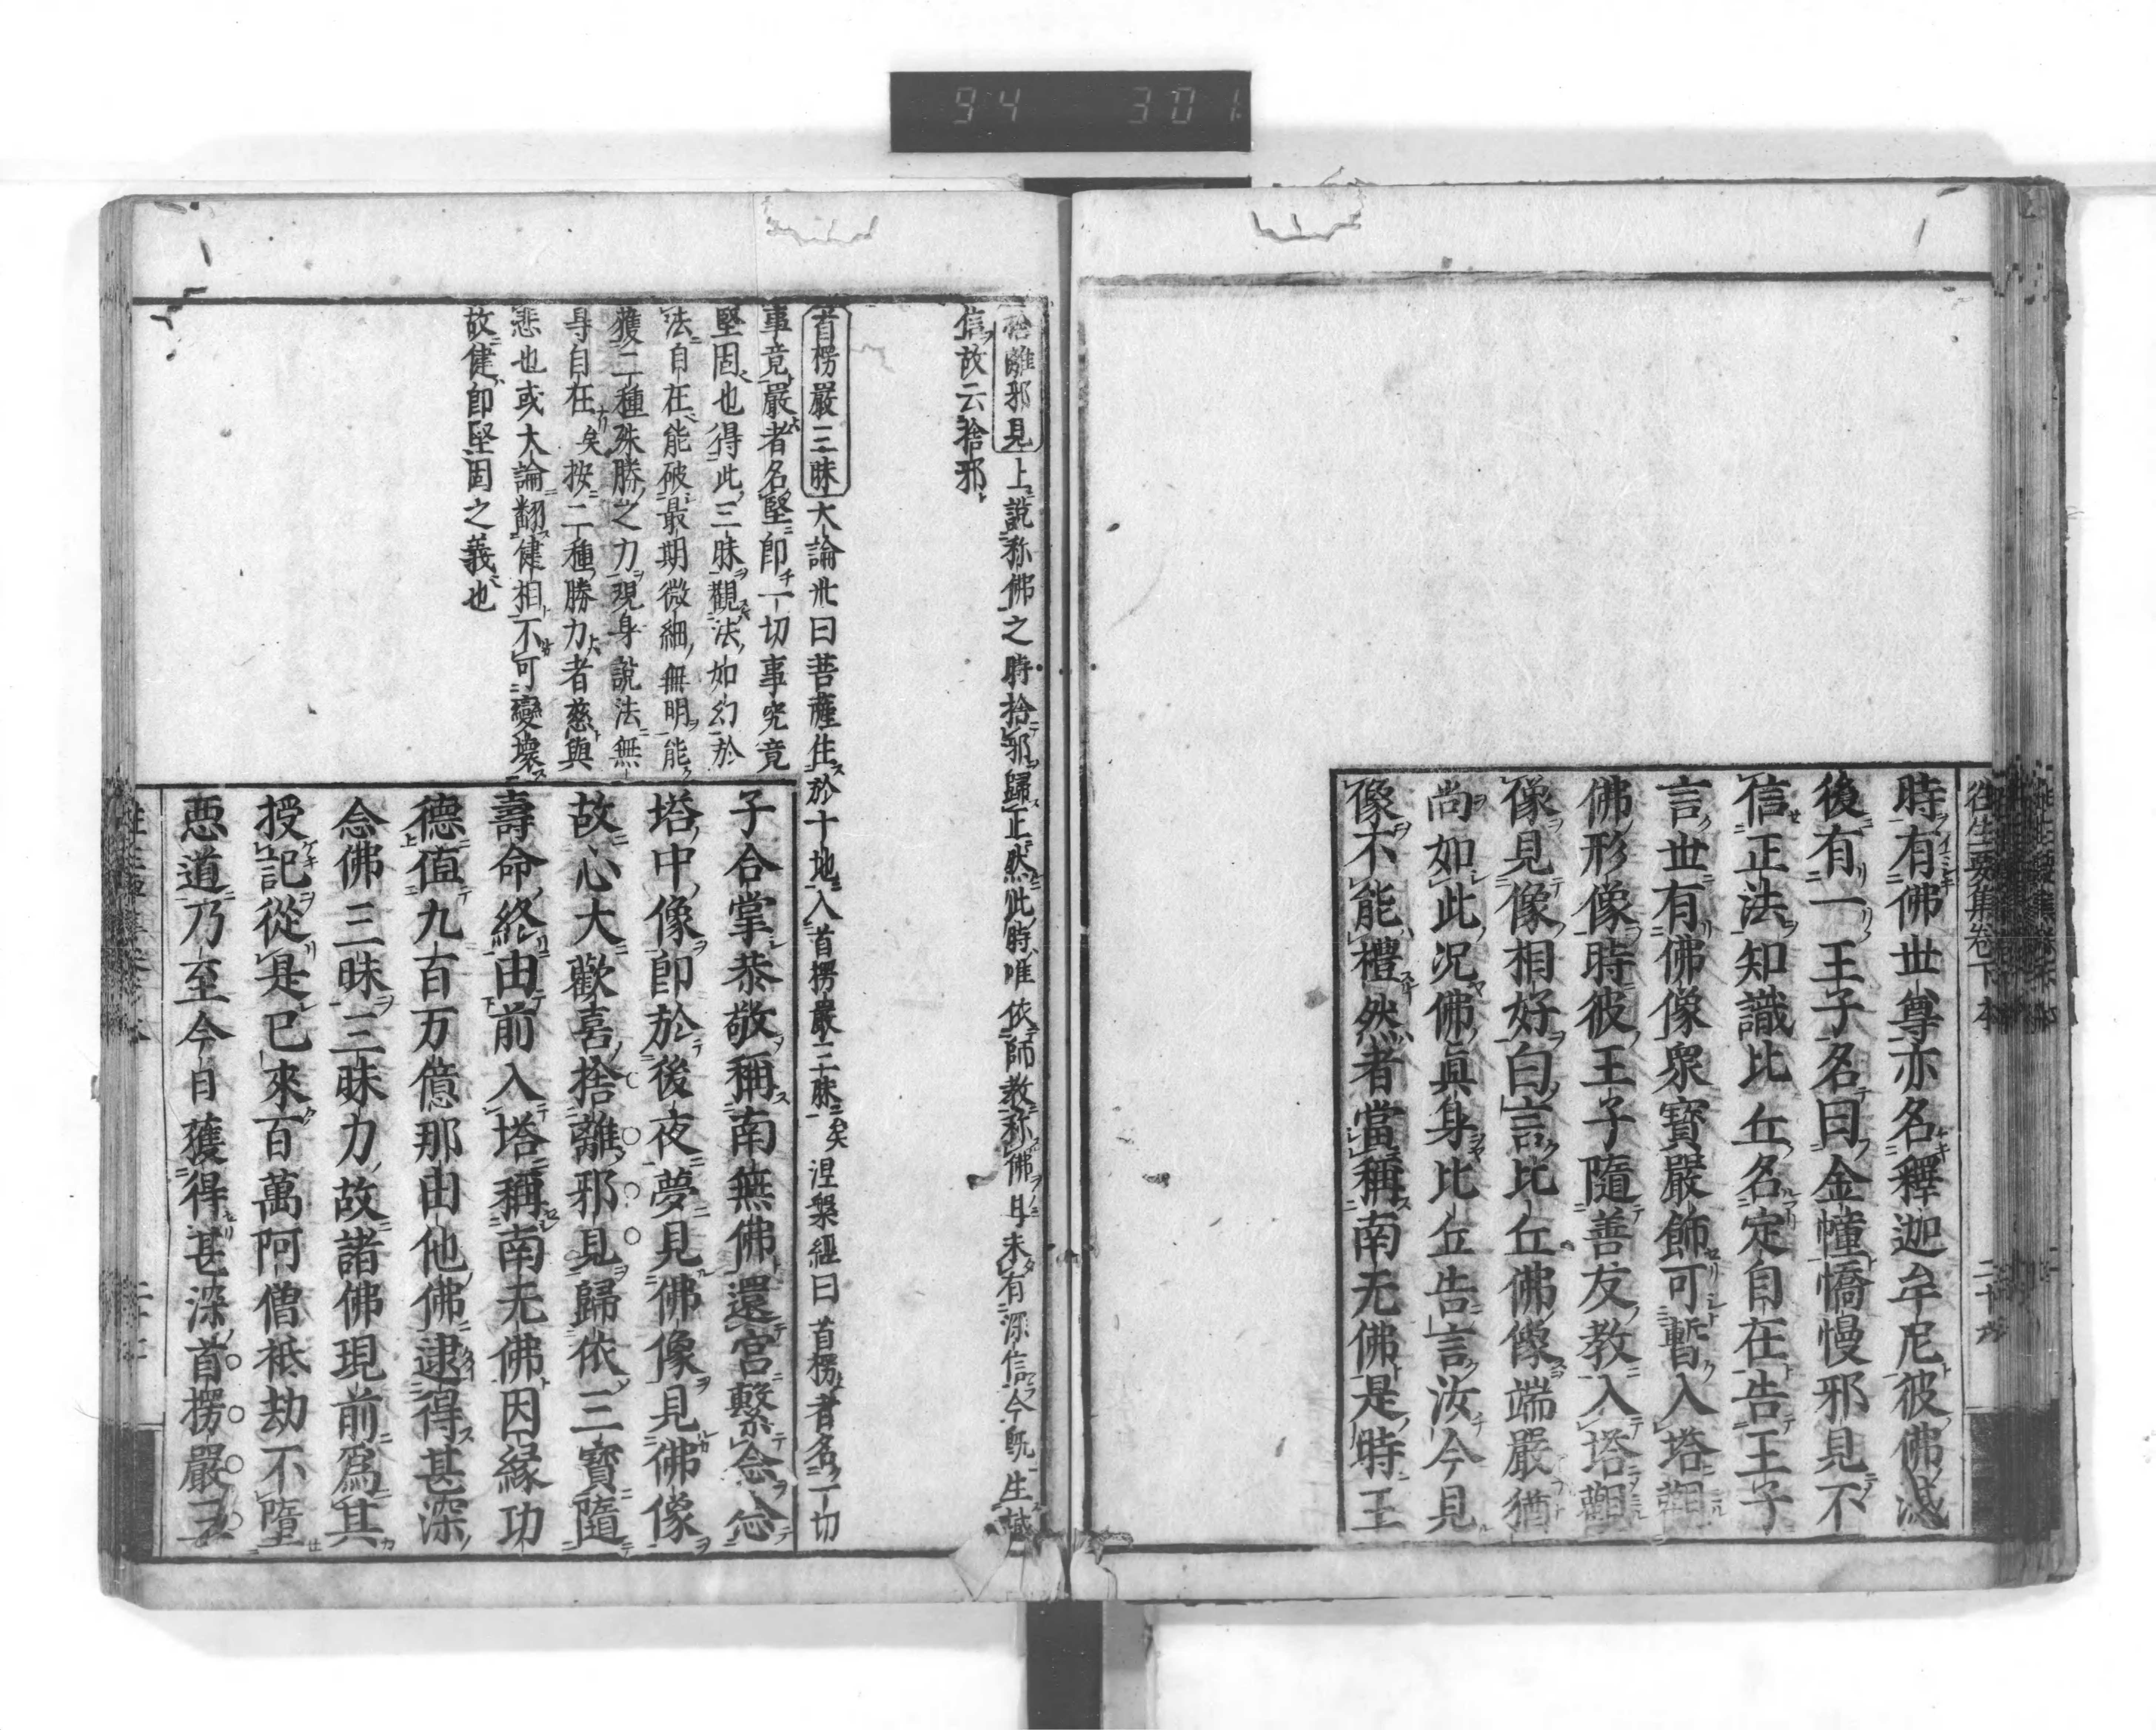 94 301
往生要集卷下本 二十九
時有佛世尊亦名釋迦牟尼彼佛滅
後有一王子名曰金幢憍慢邪見不
信正法知識比丘名定自在告王子
言世有佛像衆寶嚴飾可暫入塔觀
佛形像時彼王子隨善友教入塔觀
像見像相好白言比丘佛像端嚴猶
尚如此況佛眞身比丘告言汝今見
像不能禮然者當稱南无佛是時王
捨離邪見上說称佛之時捨邪歸正然此時唯依師教称佛耳未有深信今既生
信故云捨邪
首楞嚴三昧大論卅曰菩薩住於十地入首楞嚴三昧矣涅槃經曰首楞者名一切
事竟嚴者名堅即一切事究竟
堅固也得此三昧觀法如幻於
法自在能破最期微細無明能
獲二種殊勝之力現身說法無
导自在矣按二種勝力者慈與
悲也或大論翻健相不可變壞
故健即堅固之義也
子合掌恭敬稱南無佛還宮繫念念
塔中像即於後夜夢見佛像見佛像
故心大歡喜捨離邪見歸依三寶隨
壽命終由前入塔稱南无佛因緣功
德值九百万億那由他佛逮得甚深
念佛三昧三昧力故諸佛現前爲其
授記從是已來百萬阿僧祇劫不墮
惡道乃至今日獲得甚深首楞嚴三